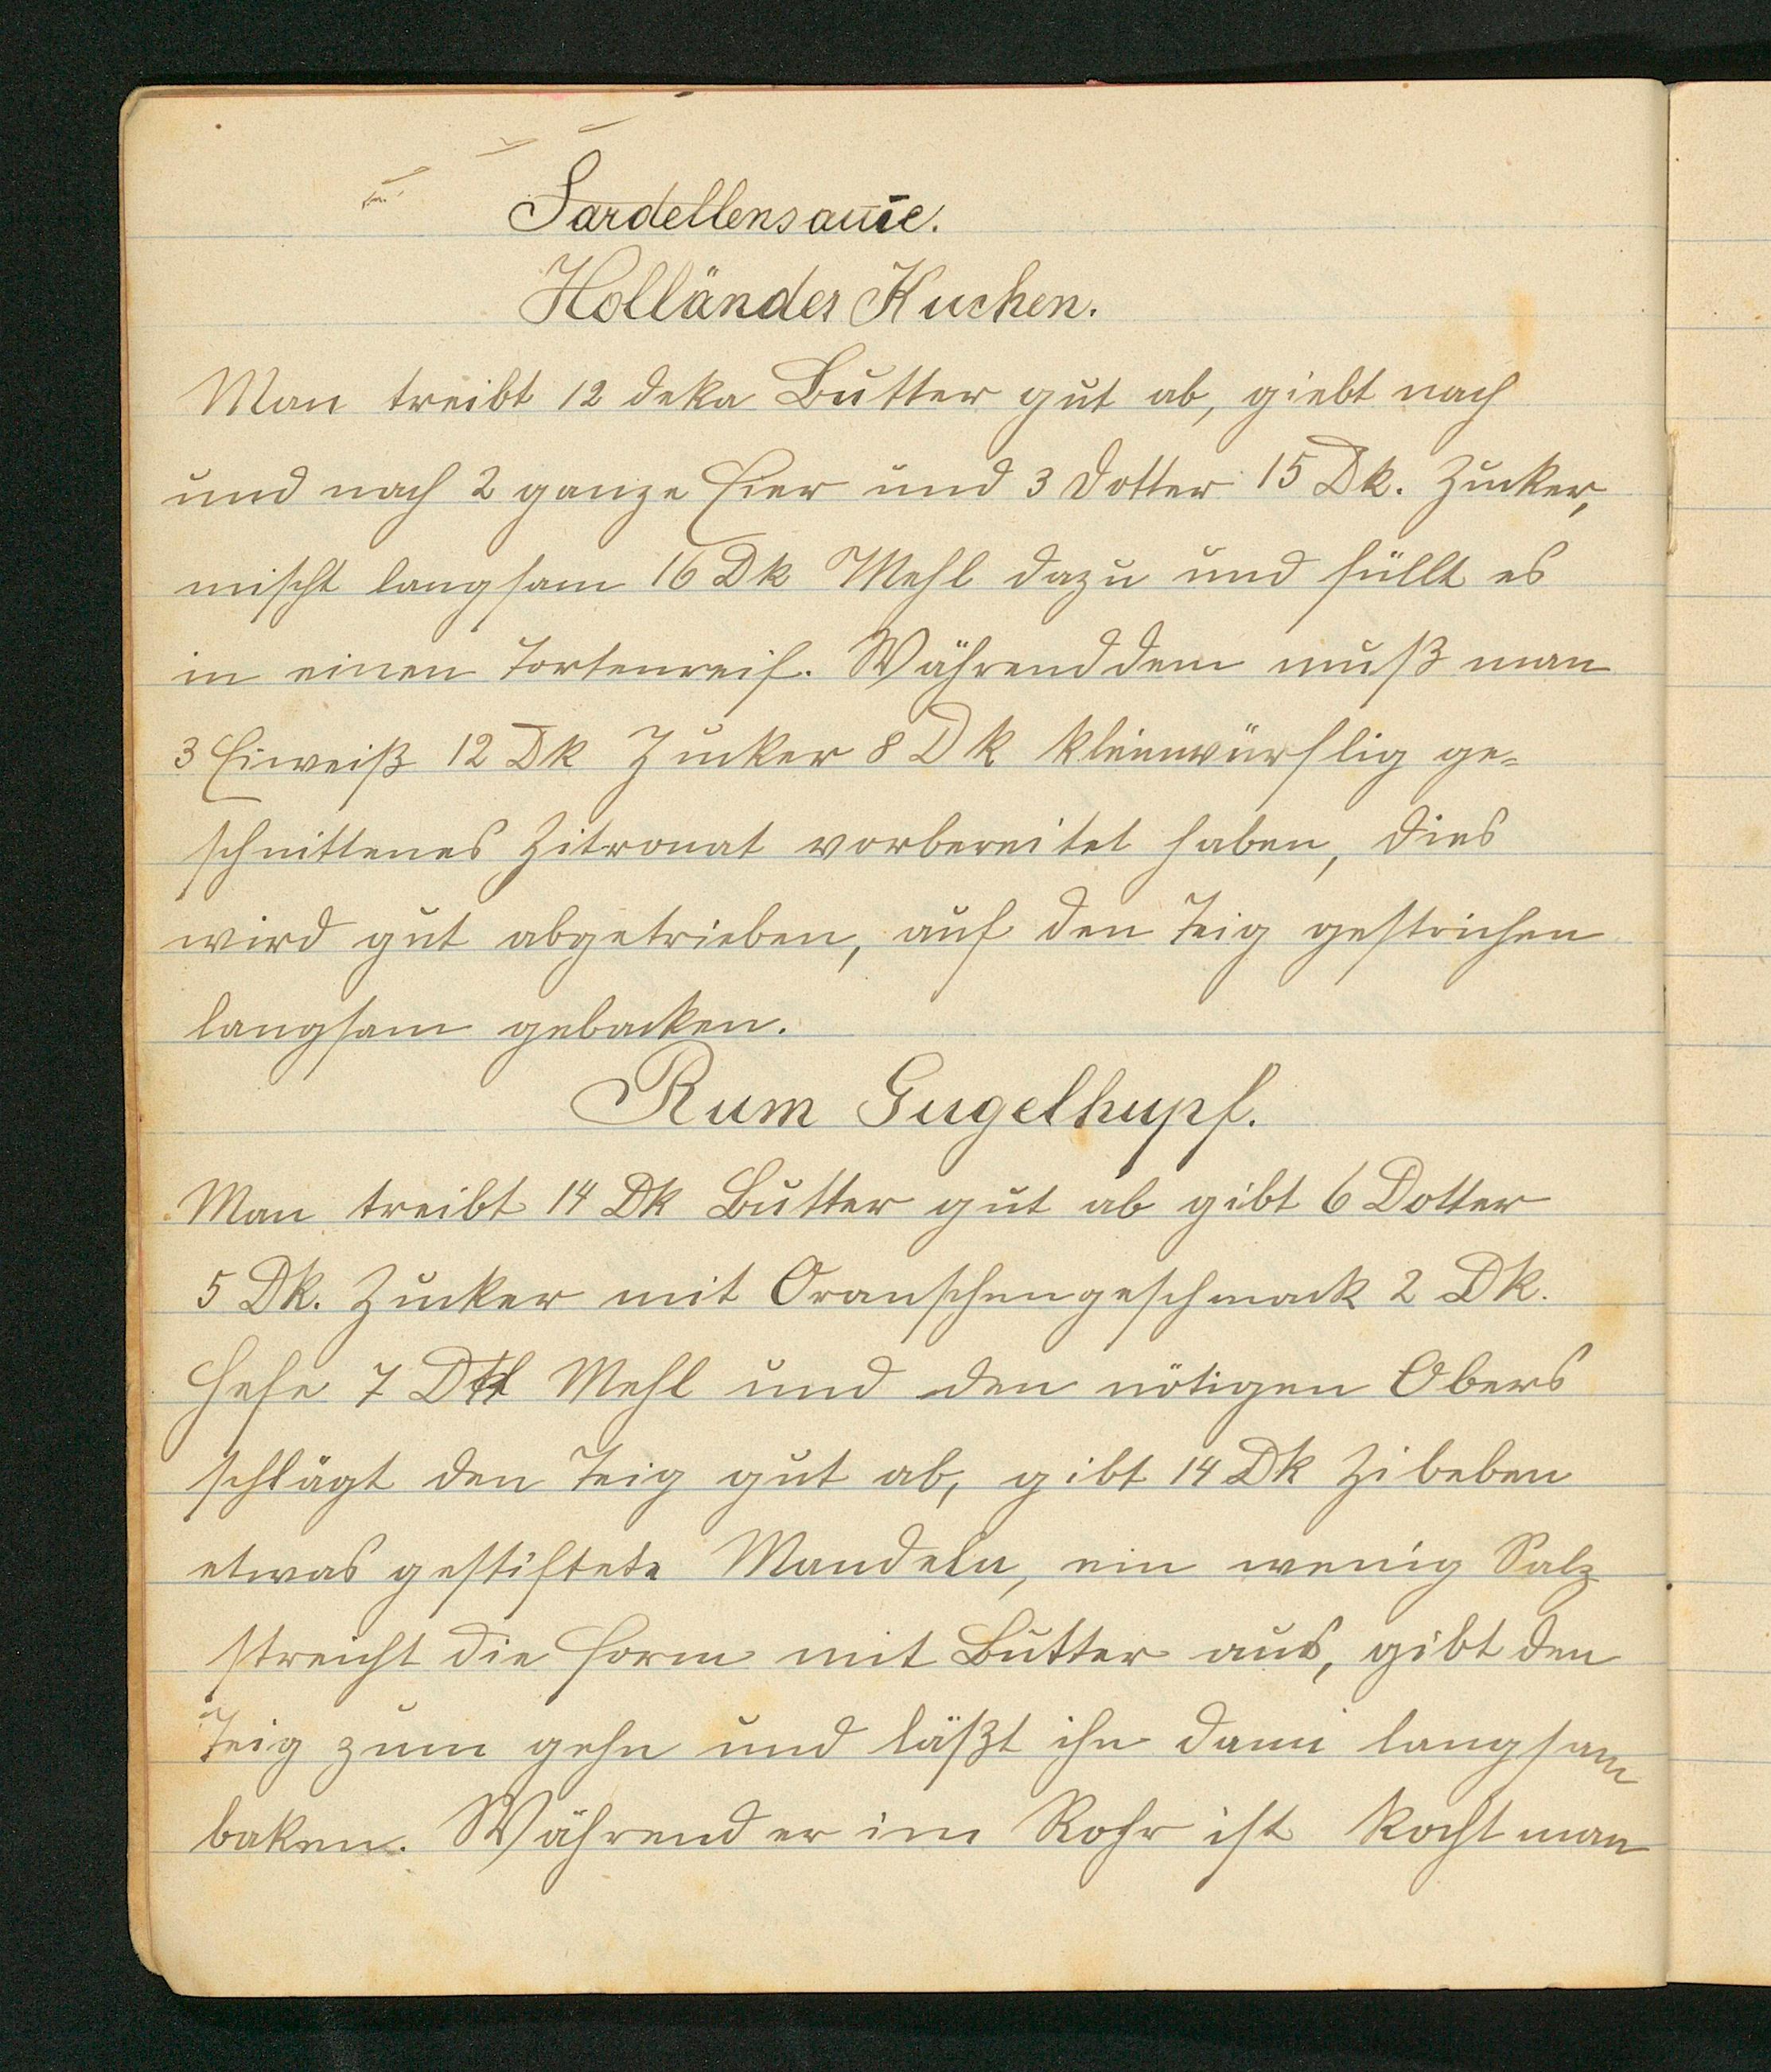 Sardellensauce.
Holländer Kuchen.
Man treibt 12 deka Butter gut ab, giebt nach
und nach 2 ganze Eier und 3 Dotter 15 Dk. Zucker,
mischt langsam 16 Dk Mehl dazu und füllt es
in einen Tortenreif. Währenddem muß man
3 Eiweiß 12 Dk Zucker 8 Dk kleinwürflig ge=
schnittenes Zitronat vorbereitet haben, dies
wird gut abgetrieben, auf den Teig gestrichen
langsam gebacken.
Rum Gugelhupf.
Man treibt 14 Dk Butter gut ab gibt 6 Dotter
5 Dk. Zucker mit Oranschengeschmack 2 Dk.
Hefe 7 Mehl und den nötigen Obers
schlägt den Teig gut ab, gibt 14 Dk Zibeben
etwas gestiftete Mandeln, ein wenig Salz
streicht die Form mit Butter aus, gibt den
Teig zum gehn und läßt ihn dann langsam
baken. Während er im Rohr ist kocht man